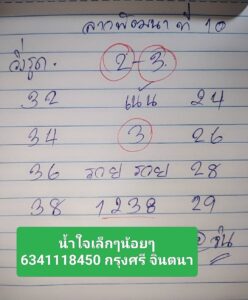 ลาวพัฒนาที่ 10
วิ่งรูด. 2-3
32 เน้น 24
34 3 26
36 รวย รวย 28
38 1238 29
น้ำใจเล็กๆน้อยๆ
6341118450 กรุงศรี จินตนา